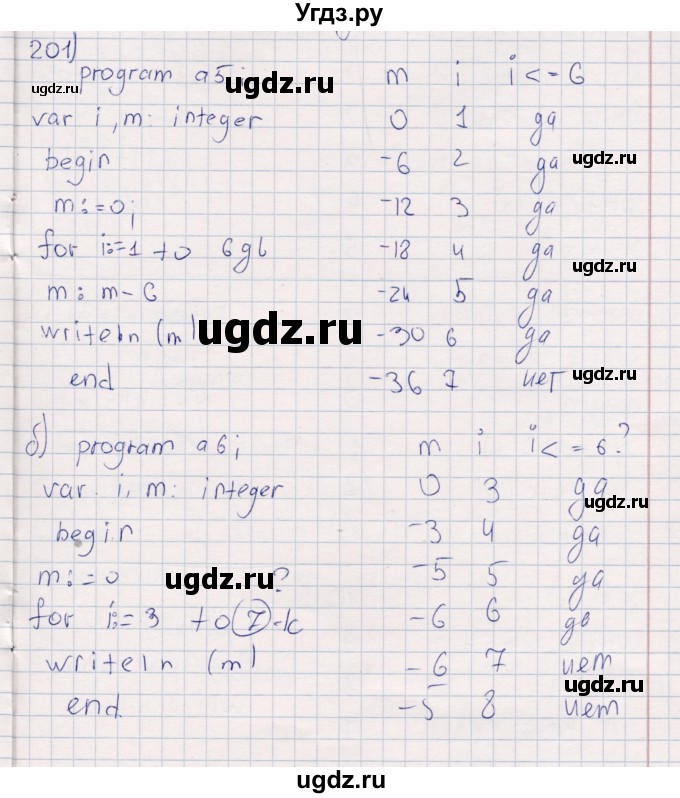 Угдз.ру
201)
program a5; m i i <= 6
var i, m: integer 0 1 да
begin -6 2 да
m:=0; -12 3 да
for i:=1 to 6 -18 4 да
m: m-6 -24 5 да
writeln (m) -30 6 да
end -36 7 нет
б) program a6; m i i <= 6?
var. i, m: integer 0 3 да
begin -3 4 да
m:=0 -5 5 да
?
for i:=3 to 7-k -6 6 да
writeln (m) -6 7 нет
end. -5 8 нет
ugdz.ru
ugdz.ru
ugdz.ru
ugdz.ru
ugdz.ru
ugdz.ru
ugdz.ru
ugdz.ru
ugdz.ru
ugdz.ru
ugdz.ru
ugdz.ru